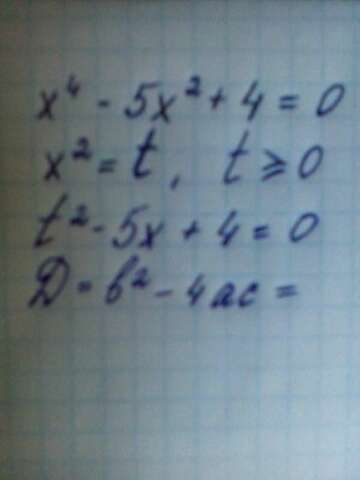 x⁴ - 5x² + 4 = 0
x² = t, t ⩾ 0
t² - 5x + 4 = 0
D = b² - 4ac =